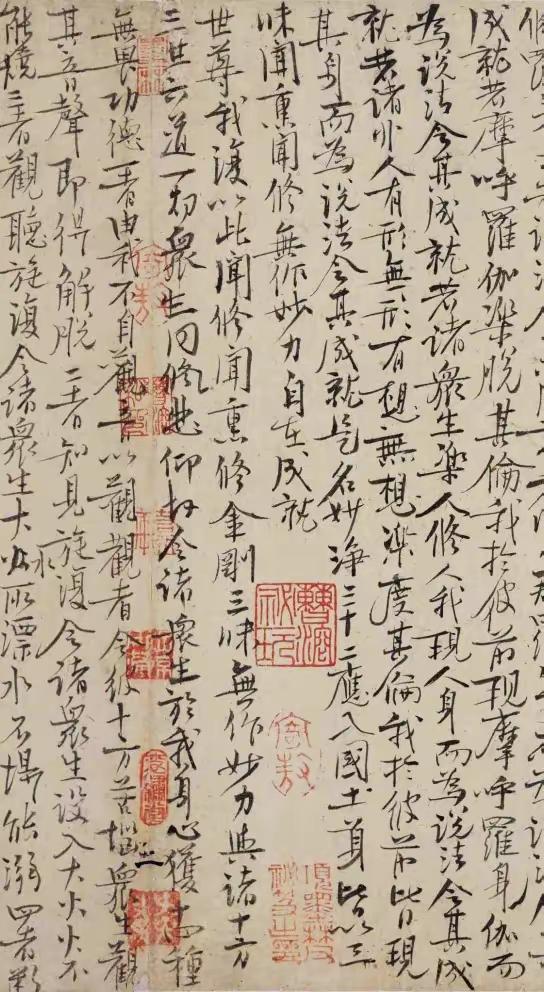 成就若摩呼羅伽樂脫其倫我於彼前現摩呼羅身伽而
為說法令其成就若諸衆生樂人修人我現人身而為說法令其成
就若諸非人有形無形有想無想樂度其倫我於彼前皆現
其身而為說法令其成就是名妙淨三十二應入國土身皆以三
昧聞熏聞修無作妙力自在成就
世尊我復以此聞修聞熏修金剛三昧無作妙力與諸十方
三世六道一切衆生同悲仰故令諸衆生於我身心獲十四種
無畏功德一者由我不自觀音以觀觀者令彼十方苦惱衆生觀
其音聲即得解脫二者知見旋復令諸衆生設入大火火不
能燒三者觀聽旋復令諸衆生大水所漂水不能溺四者斷
項墨林父秘笈之印